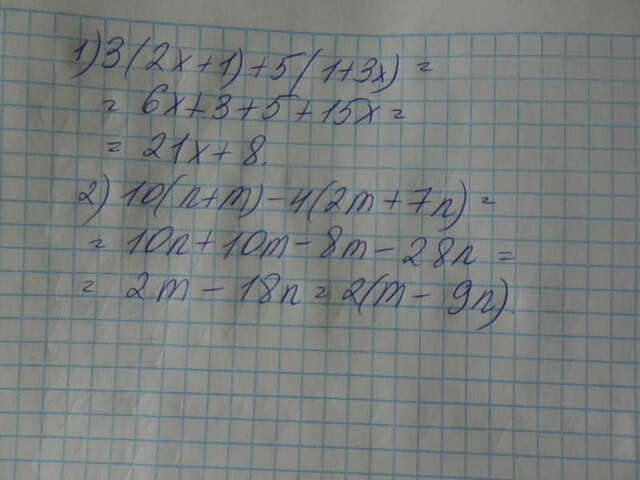 1) 3(2x+1)+5(1+3x) =
= 6x+3+5+15x =
= 21x+8.
2) 10(n+m)-4(2m+7n) =
= 10n+10m-8m-28n =
= 2m-18n = 2(m-9n)